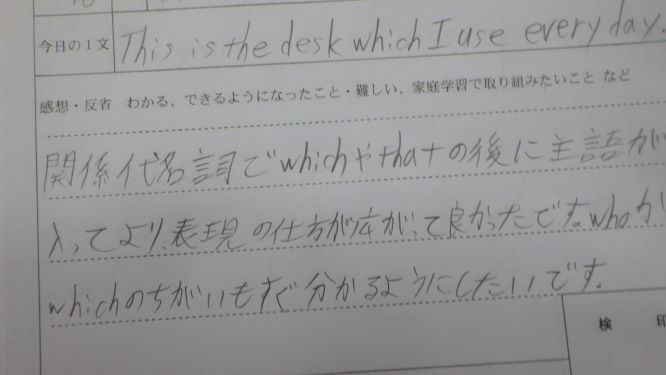 今日の1文 This is the desk which I use every day.
感想・反省 わかる、できるようになったこと・難しい、家庭学習で取り組みたいこと など
関係代名詞でwhichやthatの後に主語が
入ってより、表現の仕方が広がって良かったです。whoか
whichのちがいもすぐ分かるようにしたいです。
検 印